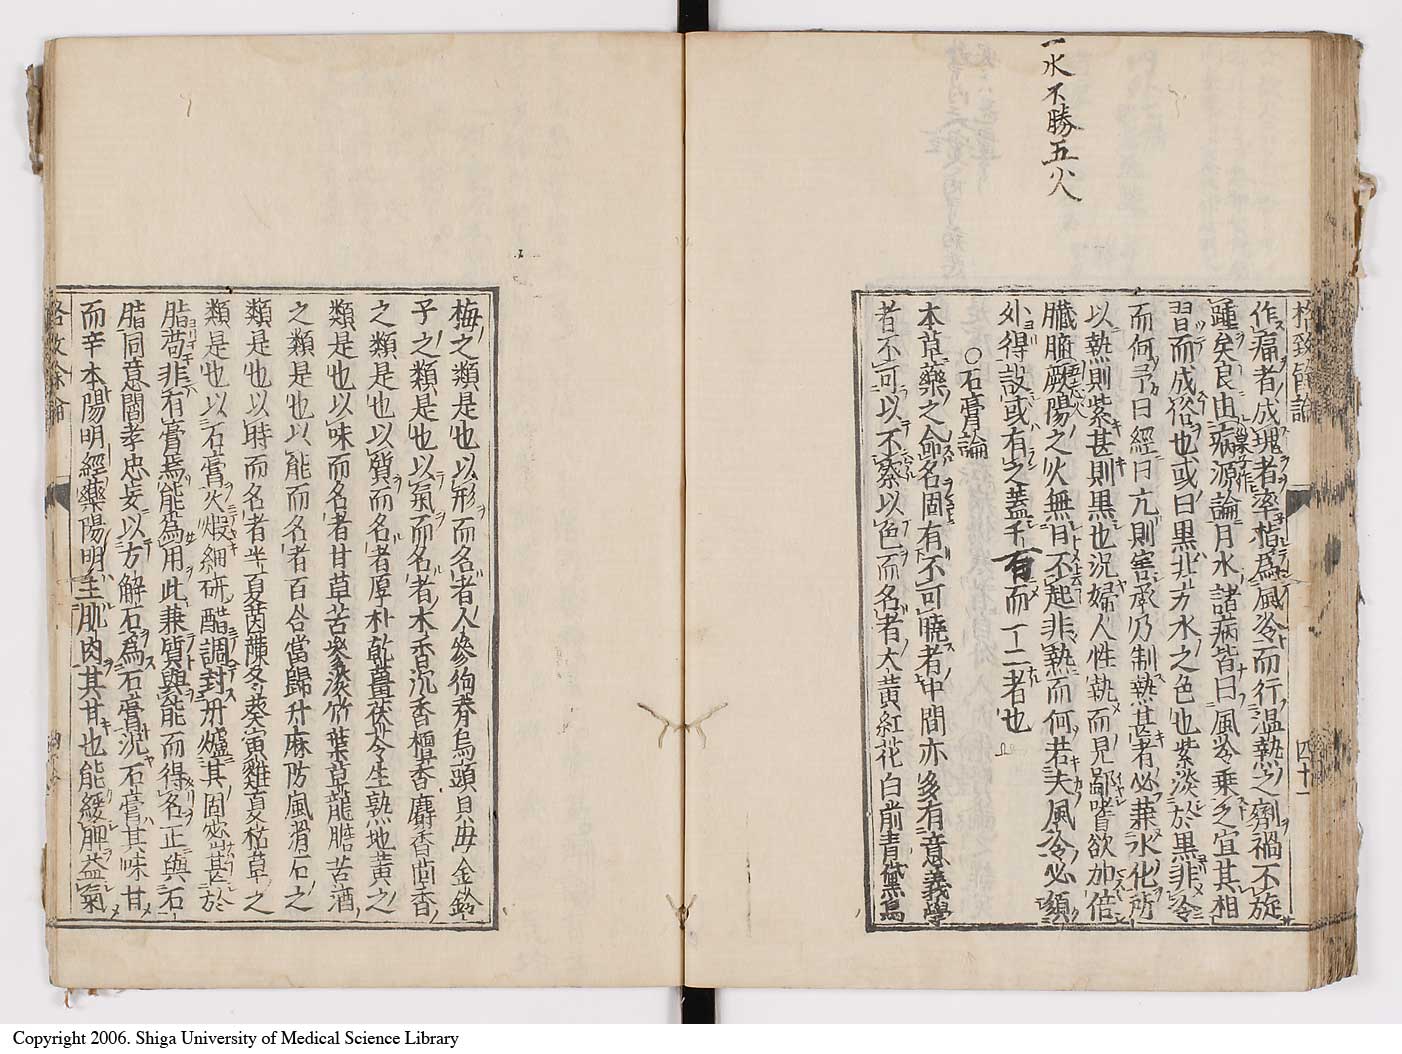 一水不勝五火
格致餘論
四十一
作痛者成塊者率指爲風冷而行温熱之劑禍不旋
踵矣良由病源論月水諸病皆曰風冷乗之宜其相
習而成俗也或曰黒北方水之色也紫淡於黒非冷
而何予曰經曰亢則害承乃制熱甚者必兼水化所
以熱則紫甚則黒也況婦人性執而見鄙嗜欲加倍
臟腑厥陽之火無日不起非熱而何若夫風冷必須
外得設或有之蓋千百而一二者也
○石膏論
本草藥之命名固有不可曉者中間亦多有意義學
者不可以不察以色而名者大黄紅花白前青黛烏
梅之類是也以形而名者人參狗脊烏頭貝毋金鈴
子之類是也以氣而名者木香沉香檀香麝香茴香
之類是也以質而名者厚朴乾薑茯苓生熟地黄之
類是也以味而名者甘草苦參淡竹葉草龍膽苦酒
之類是也以能而名者百合當歸升麻防風滑石之
類是也以時而名者半夏茵蔯冬葵寅雞夏枯草之
類是也以石膏火煅細研醋調封丹爐其固密甚於
脂苟非有膏焉能爲用此兼質與能而得名正與石
脂同意閻孝忠妄以方解石爲石膏況石膏其味甘
而辛本陽明經藥陽明主肌肉其甘也能緩脾益氣
格致餘論